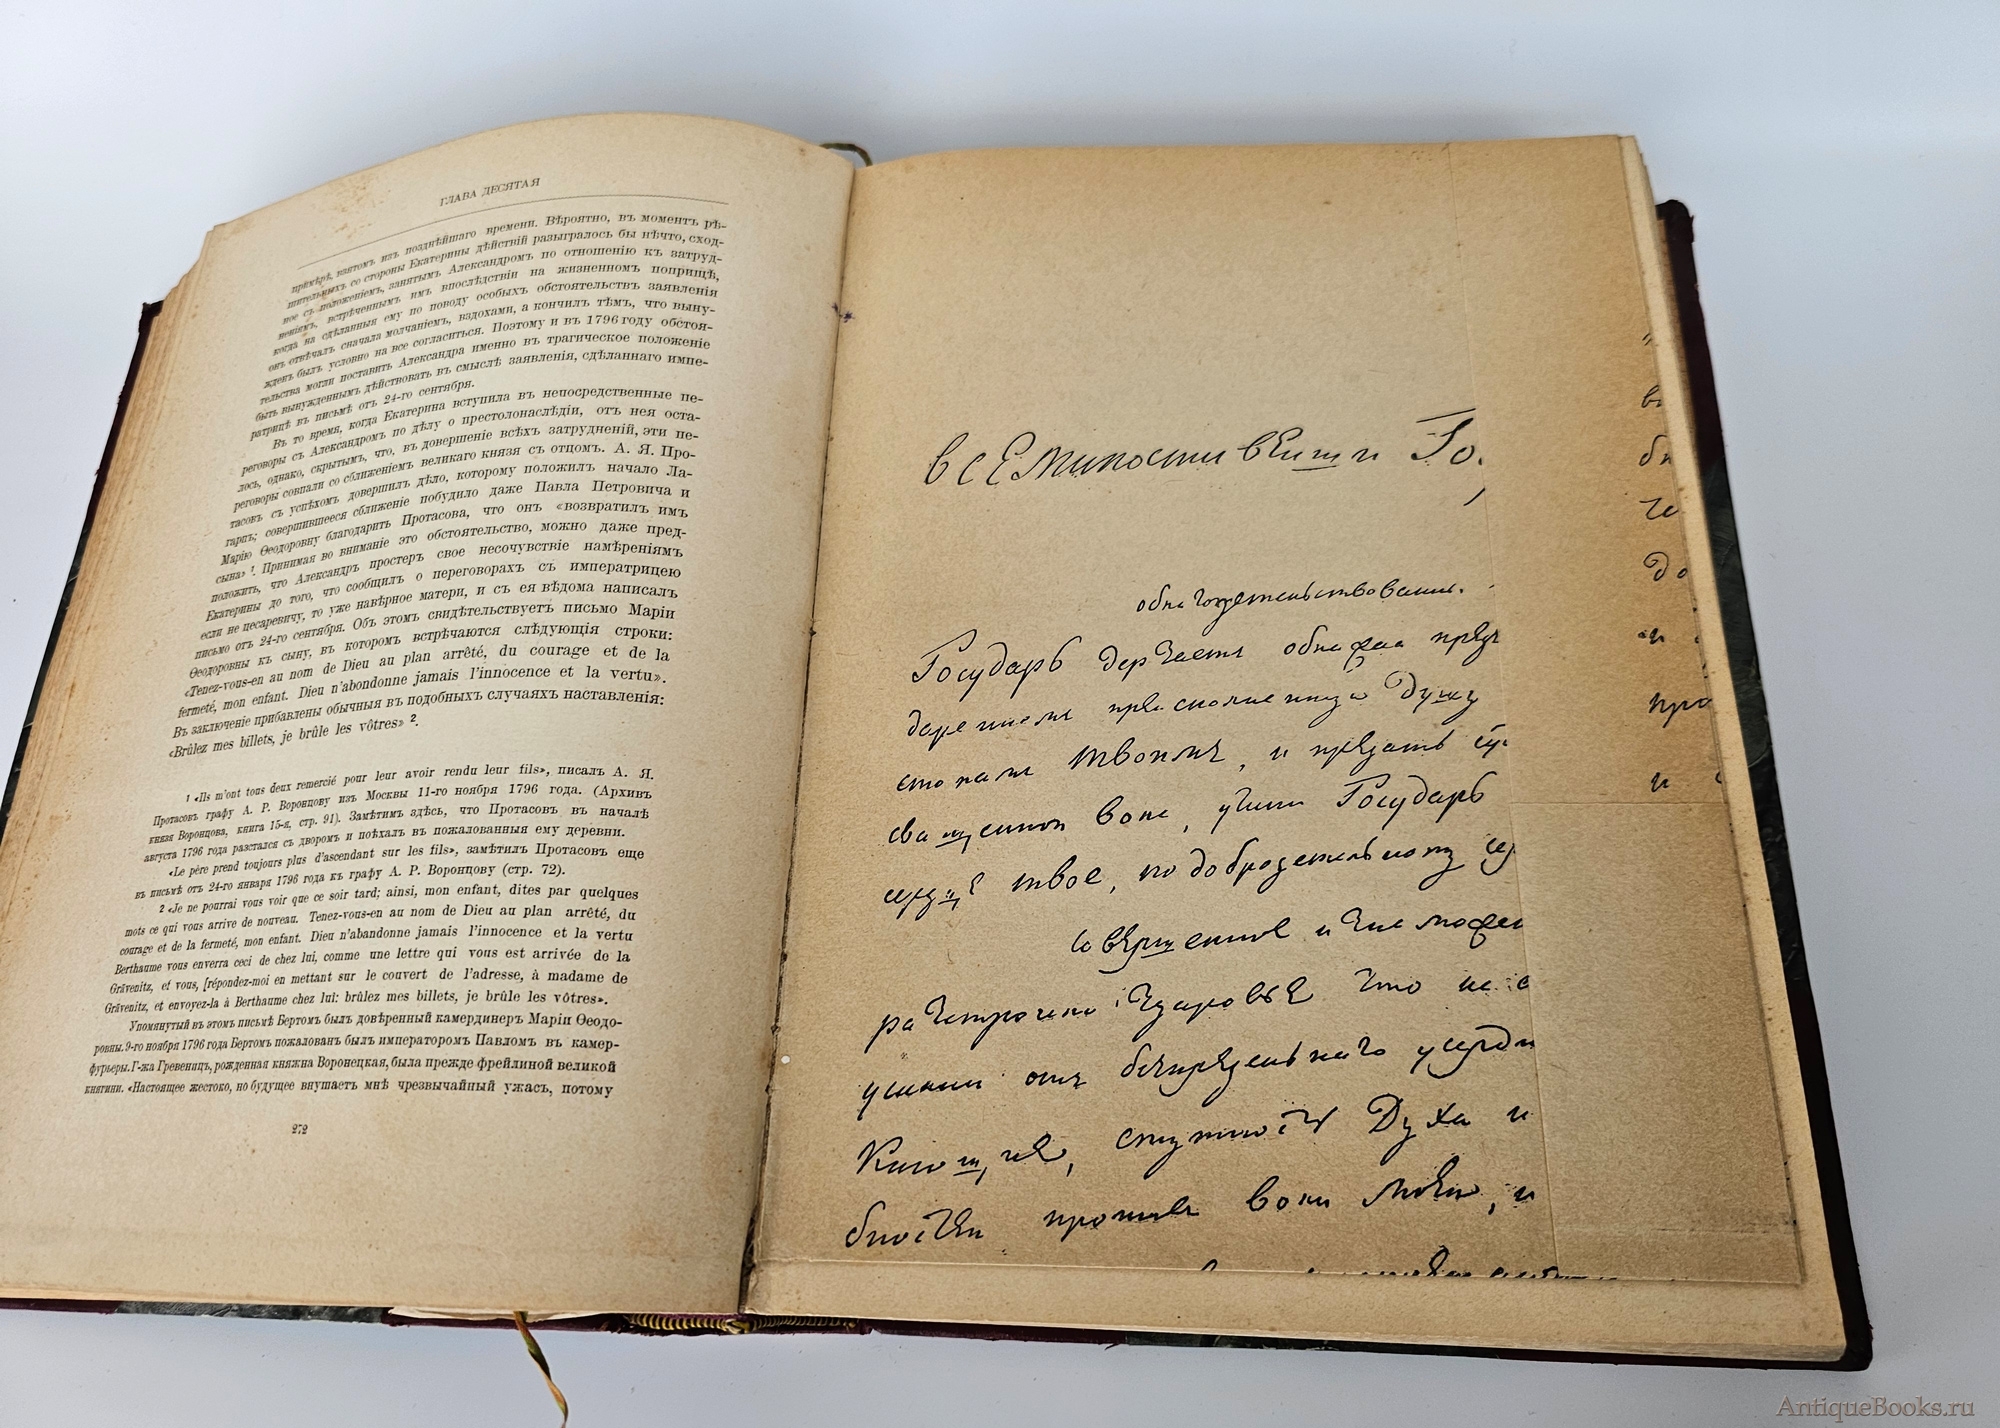 ГЛАВА ДЕСЯТАЯ
примѣрѣ, взятомъ изъ позднѣйшаго времени. Вѣроятно, въ моментъ рѣ-
шительныхъ со стороны Екатерины дѣйствій разыгралось бы нѣчто, сход-
ное съ положеніемъ, занятымъ Александромъ по отношенію къ затруд-
неніямъ, встрѣченнымъ имъ впослѣдствіи на жизненномъ поприщѣ,
когда на сдѣланныя ему по поводу особыхъ обстоятельствъ заявленія
онъ отвѣчалъ сначала молчаніемъ, вздохами, а кончилъ тѣмъ, что выну-
жденъ былъ условно на все согласиться. Поэтому и въ 1796 году обстоя-
тельства могли поставить Александра именно въ трагическое положеніе
быть вынужденнымъ дѣйствовать въ смыслѣ заявленія, сдѣланнаго импе-
ратрицѣ въ письмѣ отъ 24-го сентября.
Въ то время, когда Екатерина вступила въ непосредственные пе-
реговоры съ Александромъ по дѣлу о престолонаслѣдіи, отъ нея оста-
лось, однако, скрытымъ, что, въ довершеніе всѣхъ затрудненій, эти пе-
реговоры совпали со сближеніемъ великаго князя съ отцомъ. А. Я. Про-
тасовъ съ успѣхомъ довершилъ дѣло, которому положилъ начало Ла-
гарпъ; совершившееся сближеніе побудило даже Павла Петровича и
Марію Ѳеодоровну благодарить Протасова, что онъ «возвратилъ имъ
сына» ¹. Принимая во вниманіе это обстоятельство, можно даже пред-
положить, что Александръ простеръ свое несочувствіе намѣреніямъ
Екатерины до того, что сообщилъ о переговорахъ съ императрицею
если не цесаревичу, то уже навѣрное матери, и съ ея вѣдома написалъ
письмо отъ 24-го сентября. Объ этомъ свидѣтельствуетъ письмо Маріи
Ѳеодоровны къ сыну, въ которомъ встрѣчаются слѣдующія строки:
«Tenez-vous-en au nom de Dieu au plan arrêté, du courage et de la
fermeté, mon enfant. Dieu n'abandonne jamais l'innocence et la vertu».
Въ заключеніе прибавлены обычныя въ подобныхъ случаяхъ наставленія:
«Brûlez mes billets, je brûle les vôtres» ².
¹ «Ils m'ont tous deux remercié pour leur avoir rendu leur fils», писалъ А. Я.
Протасовъ графу А. Р. Воронцову изъ Москвы 11-го ноября 1796 года. (Архивъ
князя Воронцова, книга 15-я, стр. 91). Замѣтимъ здѣсь, что Протасовъ въ началѣ
августа 1796 года разстался съ дворомъ и поѣхалъ въ пожалованныя ему деревни.
«Le père prend toujours plus d'ascendant sur les fils», замѣтилъ Протасовъ еще
въ письмѣ отъ 24-го января 1796 года къ графу А. Р. Воронцову (стр. 72).
² «Je ne pourrai vous voir que ce soir tard; ainsi, mon enfant, dites par quelques
mots ce qui vous arrive de nouveau. Tenez-vous-en au nom de Dieu au plan arrêté, du
courage et de la fermeté, mon enfant. Dieu n'abandonne jamais l'innocence et la vertu
Berthaume vous enverra ceci de chez lui, comme une lettre qui vous est arrivée de la
Grävenitz, et vous, [répondez-moi en mettant sur le couvert de l'adresse, à madame de
Grävenitz, et envoyez-la à Berthaume chez lui: brûlez mes billets, je brûle les vôtres».
Упомянутый въ этомъ письмѣ Бертомъ былъ довѣренный камердинеръ Маріи Ѳеодо-
ровны. 9-го ноября 1796 года Бертомъ пожалованъ былъ императоромъ Павломъ въ камер-
фурьеры. Г-жа Гревеницъ, рожденная княжна Воронецкая, была прежде фрейлиной великой
княгини. «Настоящее жестоко, но будущее внушаетъ мнѣ чрезвычайный ужасъ, потому
272
всемилостивеиши Го
Государь дерзаетъ
душу
стопамъ твоимъ, и предать
священнои воле, Государь
сердце твое, по добродетельному
совершенное и
что не
усании отъ безпредельнаго
Духа и
противъ воли моей, и
AntiqueBooks.ru